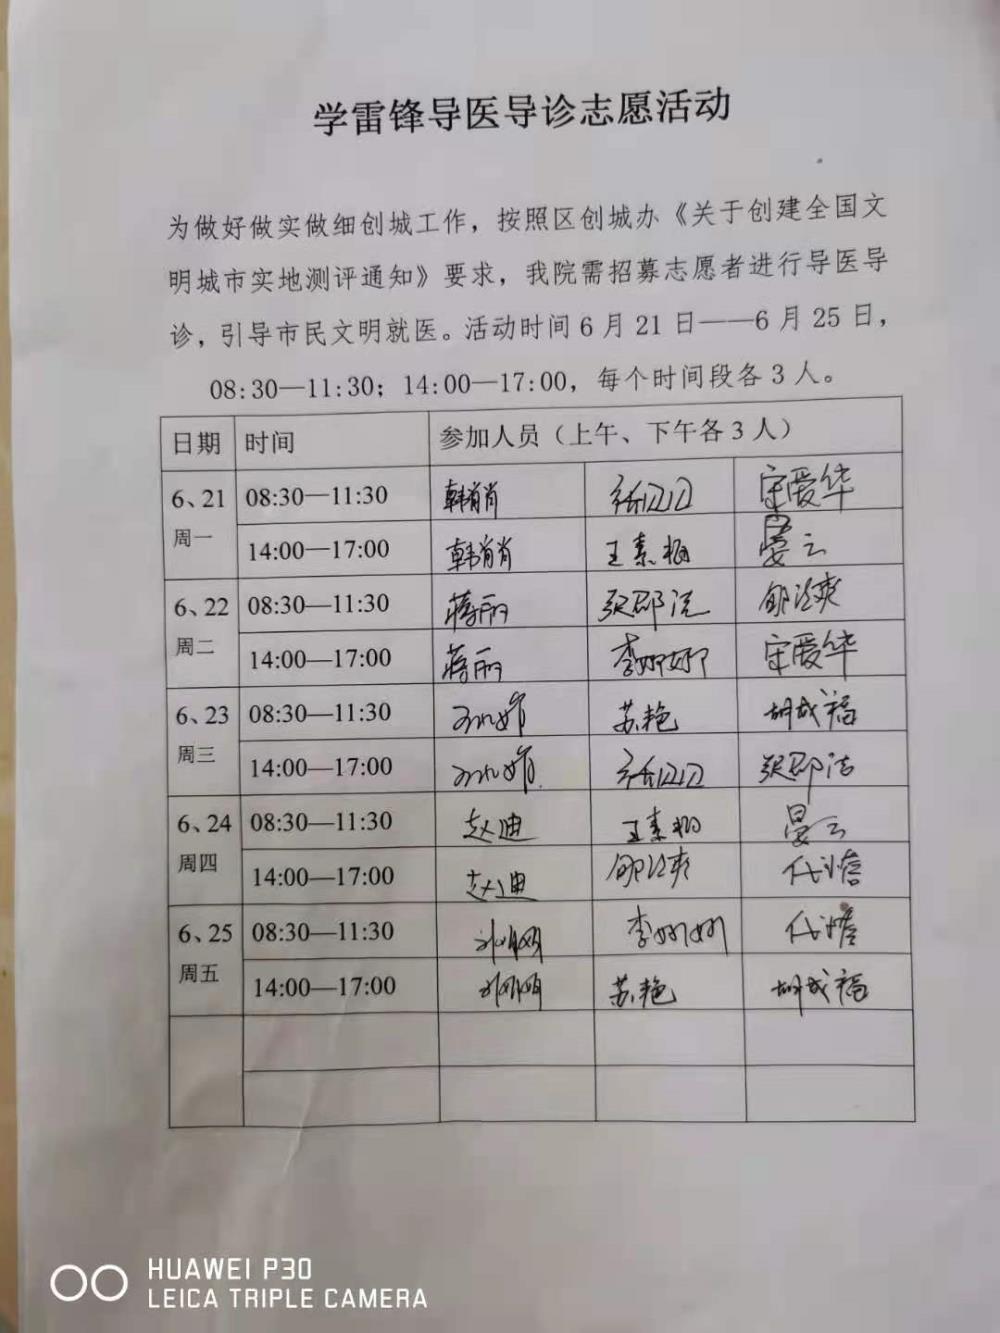 学雷锋导医导诊志愿活动
为做好做实做细创城工作，按照区创城办《关于创建全国文
明城市实地测评通知》要求，我院需招募志愿者进行导医导
诊，引导市民文明就医。活动时间6月21日——6月25日，
08:30—11:30；14:00—17:00，每个时间段各3人。
日期 时间 参加人员（上午、下午各3人）
6、21 08:30—11:30 韩肖肖 宋爱华
周一 14:00—17:00 韩肖肖 王素梅 晏云
6、22 08:30—11:30 蒋丽
周二 14:00—17:00 蒋丽 李妍妍 宋爱华
6、23 08:30—11:30 苏艳 胡成福
周三 14:00—17:00
6、24 08:30—11:30 赵迪 王素梅 晏云
周四 14:00—17:00 赵迪
6、25 08:30—11:30 李妍妍
周五 14:00—17:00 苏艳 胡成福
HUAWEI P30
LEICA TRIPLE CAMERA